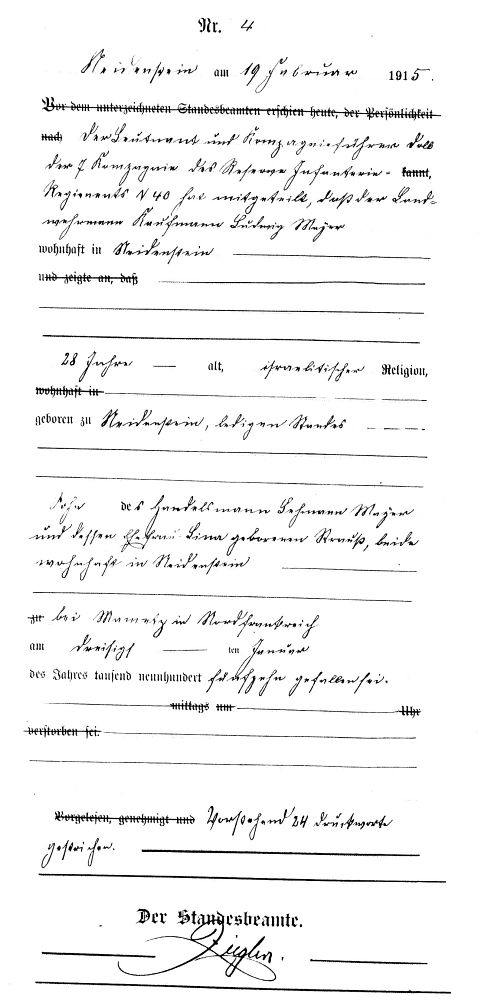 Nr. 4
Neidenstein am 19 Februar 1915.
Vor dem unterzeichneten Standesbeamten erschien heute, der Persönlichkeit
nach Der Leutnant und Kompagnieführer
der 7 Kompagnie des Reserve Infanterie- kannt,
Regiements N 40 hat mitgeteilt, daß der Land-
wehrmann Kaufmann Ludwig Mayer
wohnhaft in Neidenstein
und zeigte an, daß
28 Jahre alt, israelitischer Religion,
wohnhaft in
geboren zu Neidenstein, ledigen Standes
Sohn des Handelsmann Lehmann Mayer
und dessen Ehefrau Lina geborenen Strauß, beide
wohnhaft in Neidenstein
zu bei Mametz in Nordfrankreich
am dreisigst ten Januar
des Jahres tausend neunhundert fünfzehn gefallen sei.
mittags um Uhr
verstorben sei.
Vorgelesen, genehmigt und Vorstehend 24 Druckworte
gestrichen.
Der Standesbeamte.
Ziegler.